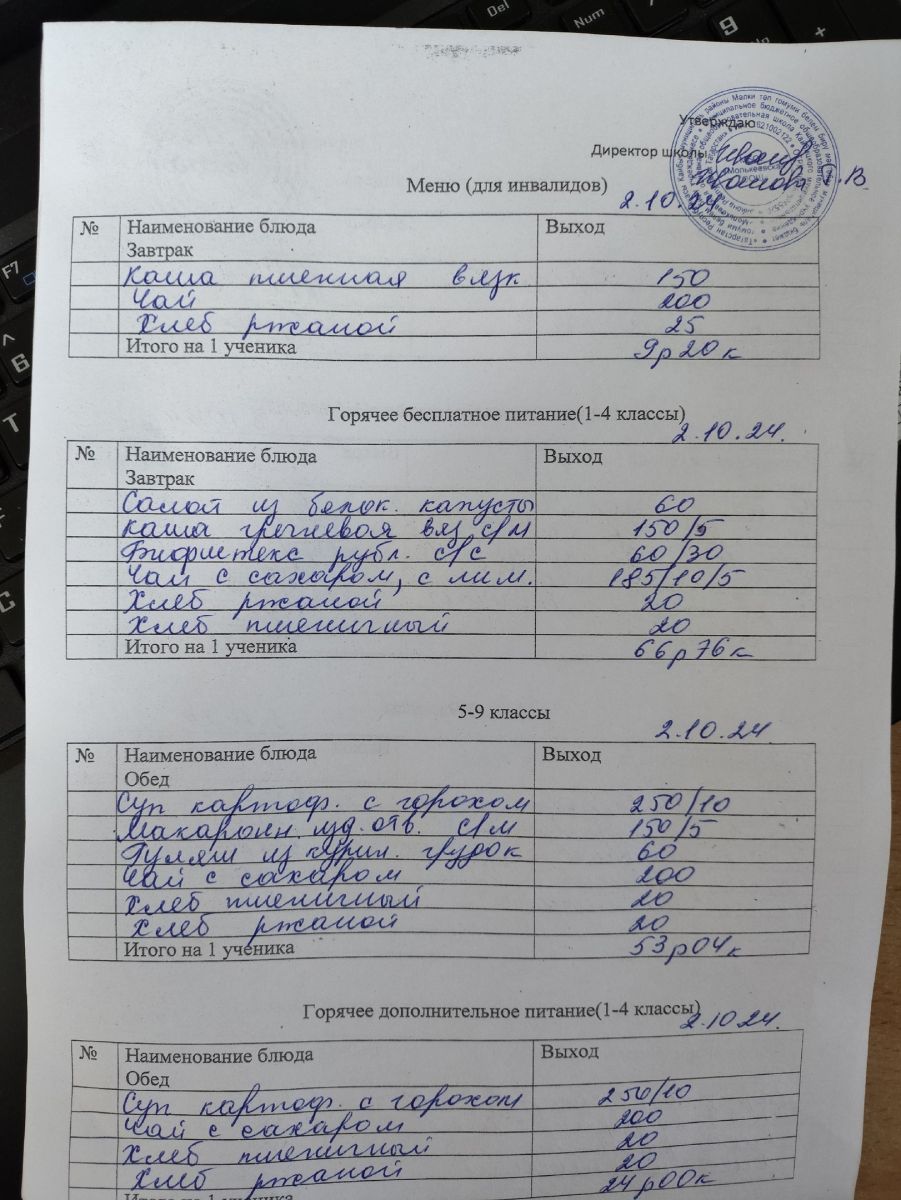 Утверждаю
Директор школы
Меню (для инвалидов)
2.10.24
№ Наименование блюда Выход
Завтрак
Каша пшенная вязк 150
Чай 200
Хлеб ржаной 25
Итого на 1 ученика 9р20к
Горячее бесплатное питание(1-4 классы)
2.10.24.
№ Наименование блюда Выход
Завтрак
Салат из белок. капусты 60
Каша гречневая вяз с/м 150/5
Бифштекс рубл. с/с 60/30
Чай с сахаром, с лим. 185/10/5
Хлеб ржаной 20
Хлеб пшеничный 20
Итого на 1 ученика 66р76к
5-9 классы
2.10.24.
№ Наименование блюда Выход
Обед
Суп картоф. с горохом 250/10
Макаронн. изд. отв. с/м 150/5
Гуляш из курин. грудок 60
Чай с сахаром 200
Хлеб пшеничный 20
Хлеб ржаной 20
Итого на 1 ученика 53р04к
Горячее дополнительное питание(1-4 классы)
2.10.24.
№ Наименование блюда Выход
Обед
Суп картоф. с горохом 250/10
Чай с сахаром 200
Хлеб пшеничный 20
Хлеб ржаной 20
Итого на 1 ученика 24р00к